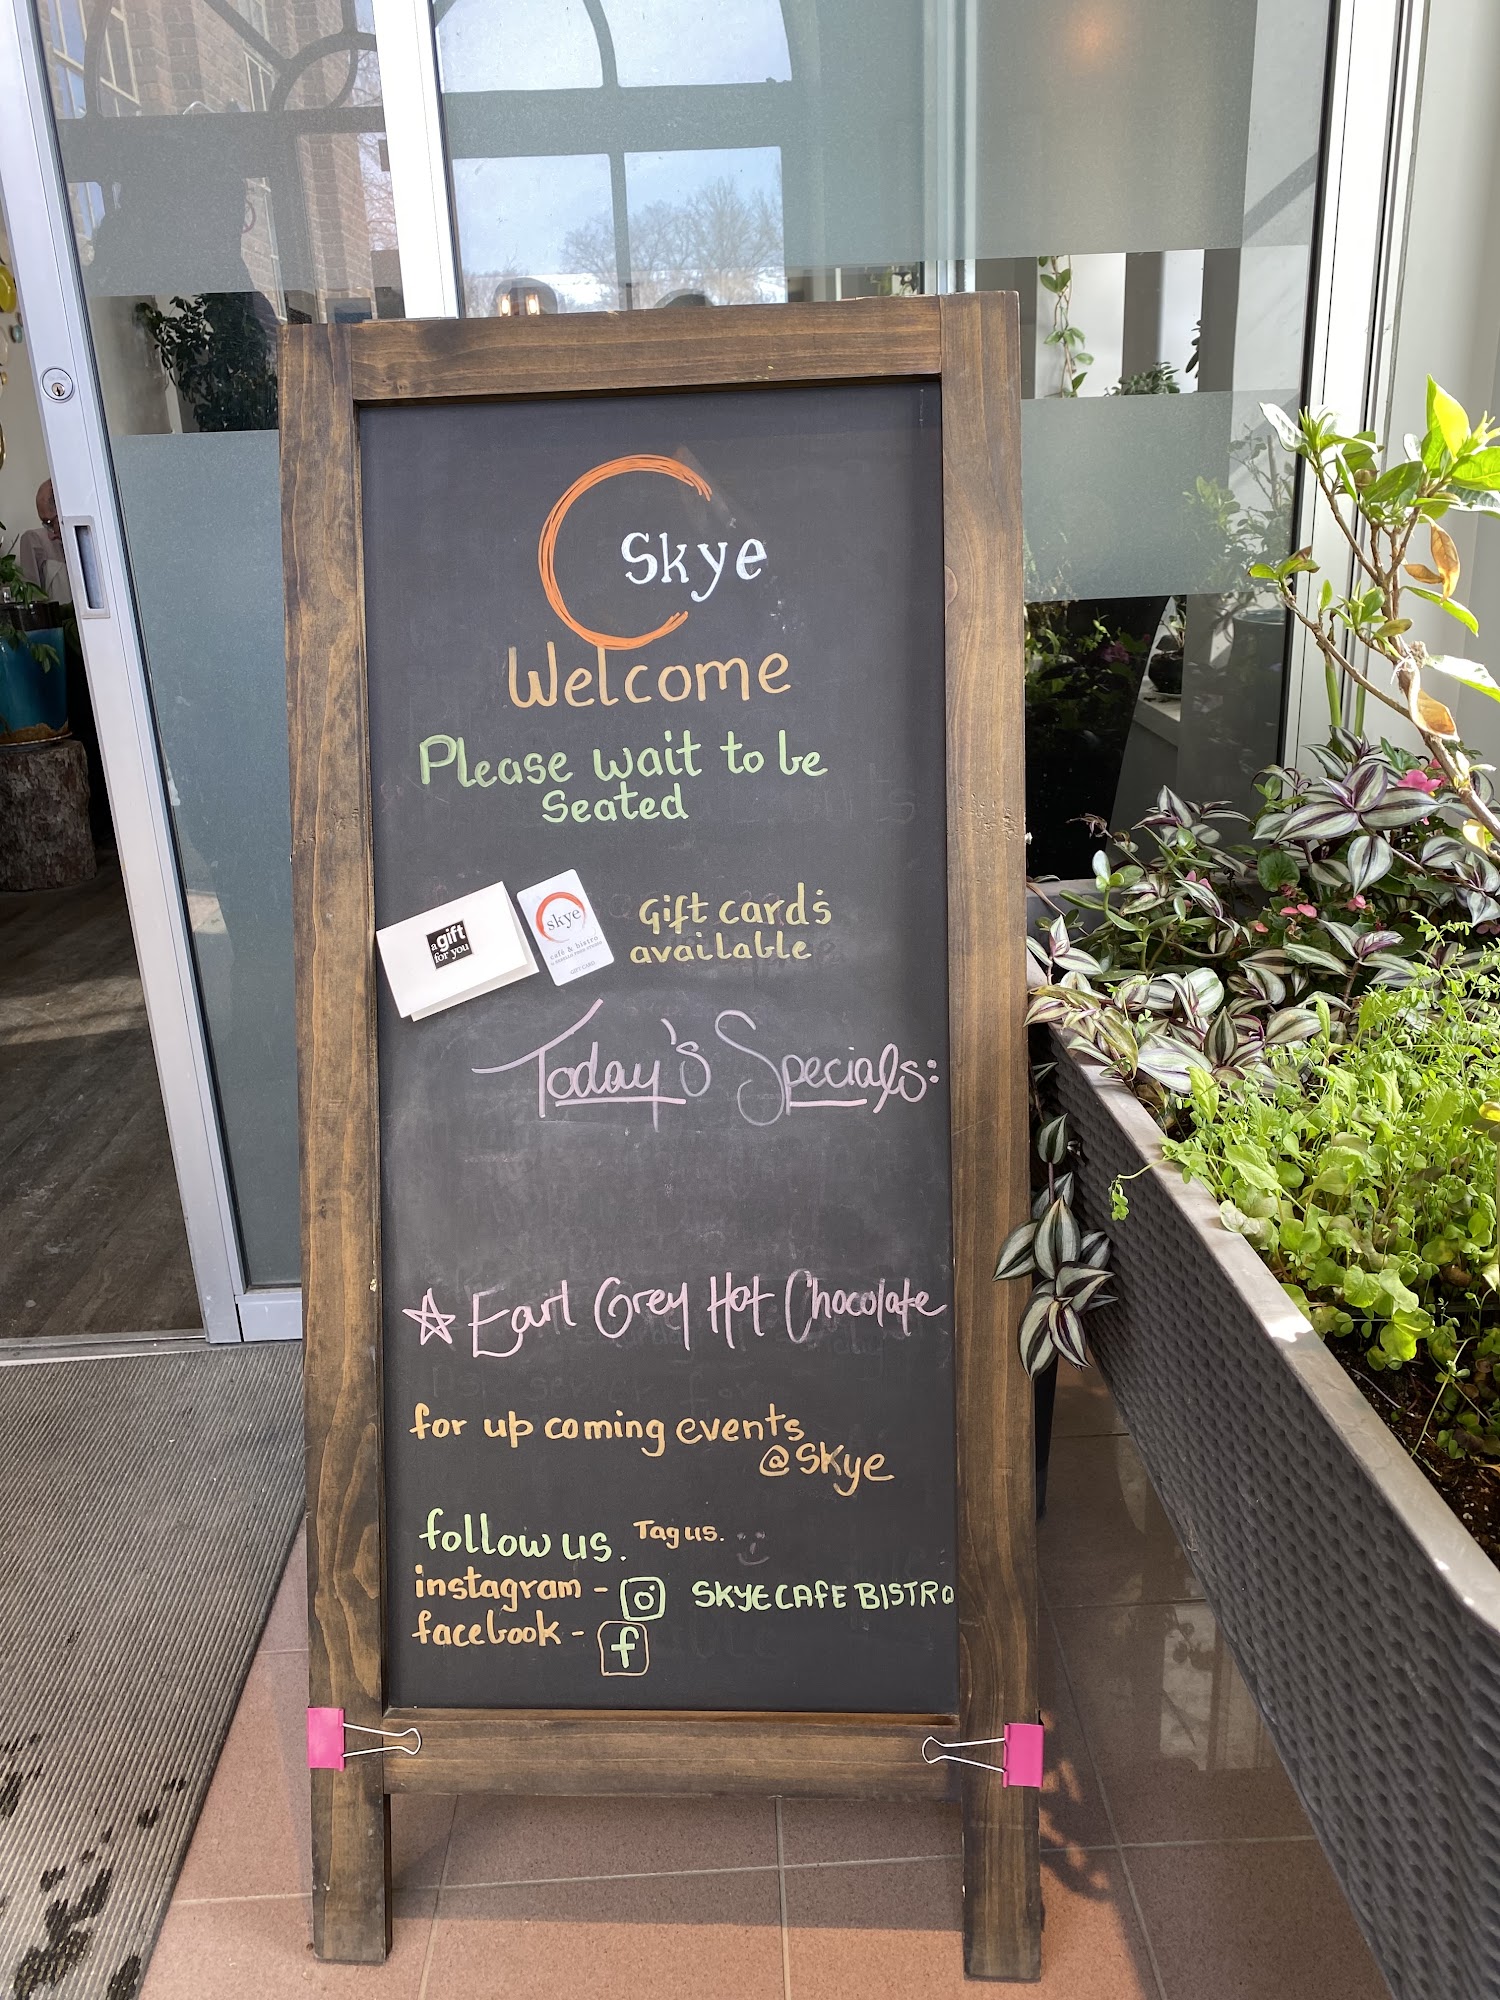 Skye
Welcome
Please wait to be
seated
a gift
for you
skye
café & bistro
GIFT CARD
Gift cards
available
Today's Specials:
☆ Earl Grey Hot Chocolate
for up coming events
@Skye
follow us. Tag us.
instagram - SKYECAFEBISTRO
facebook - f